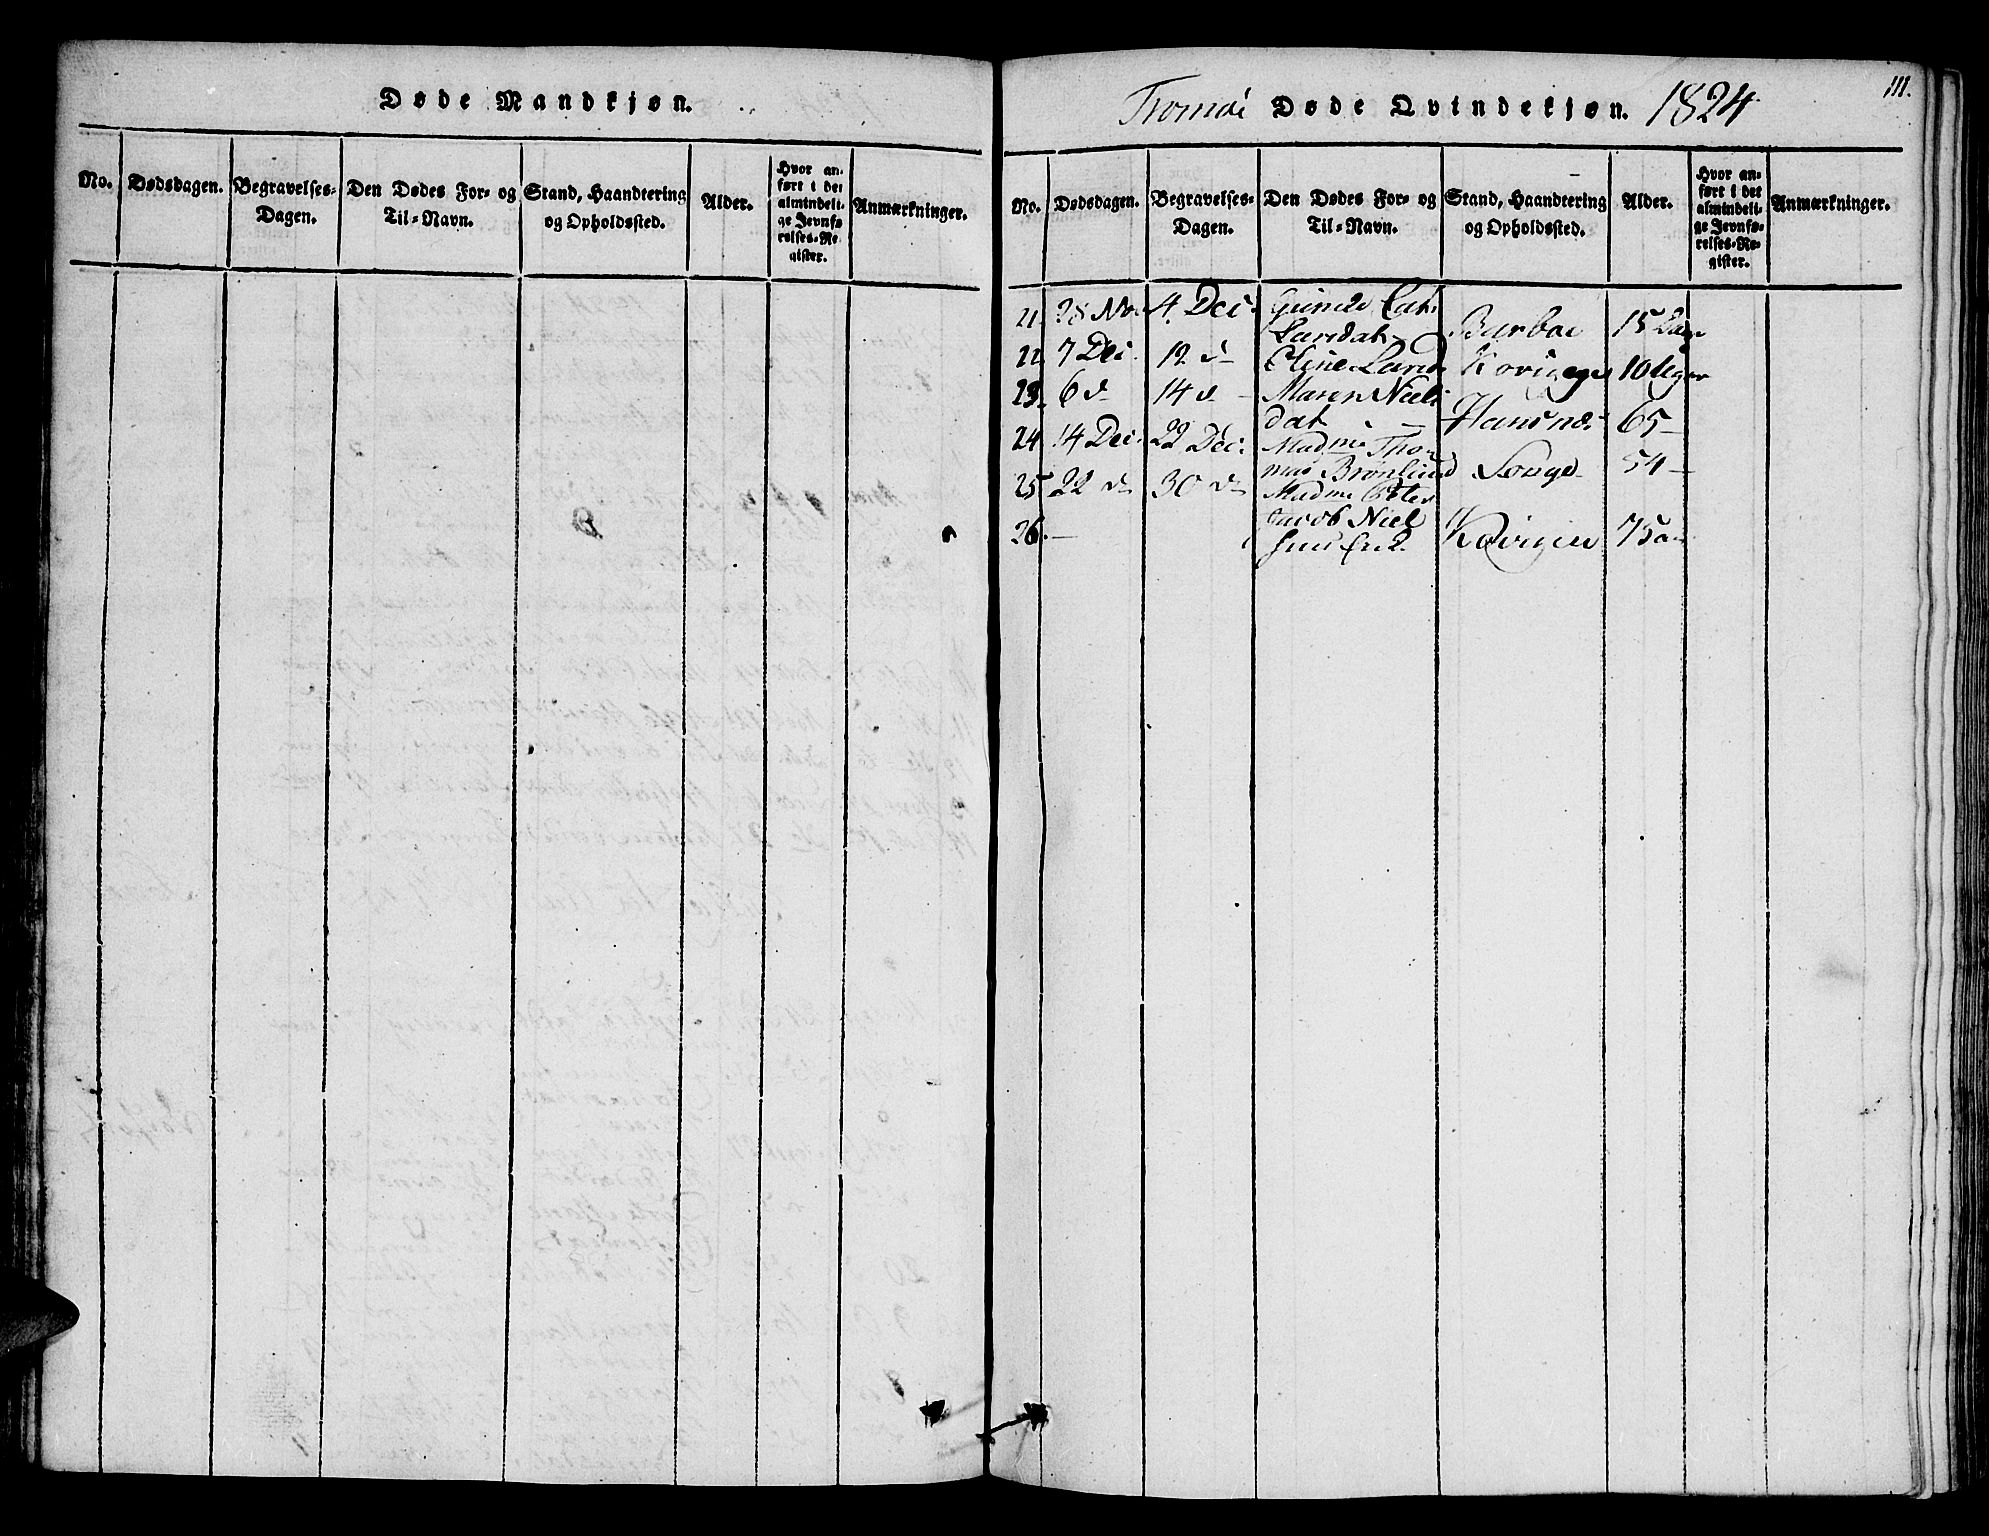 Døde Mandkjøn.
No.
Dødsdagen.
Begravelses-
Dagen.
Den Dødes For- og
Til-Navn.
Stand, Haandtering
og Opholdssted.
Alder.
Hvor an-
ført i det
almindeli-
ge Jevnfø-
relses-Re-
gister.
Anmærkninger.
Tromøe Døde Qvindekjøn. 1824
111.
No.
Dødsdagen.
Begravelses-
Dagen.
Den Dødes For- og
Til-Navn.
Stand, Haandtering
og Opholdssted.
Alder.
Hvor an-
ført i det
almindeli-
ge Jevnfø-
relses-Re-
gister.
Anmærkninger.
21. 28 Nov 4. Dec. Gunde Cath
Larsdat Barboe 15 Dage
22. 7 Dec. 12 d Eline Lars Kovigen 10 Uger
23. 6 d 14 d Maren Niels
dat Hansnæs 65
24 14 Dec. 22 Dec. Madme Tho
mas Brønlund Songe 54
25 22 d 30 d Madme Peter
26. Jacob Niel
sens Enke Kovigen 75